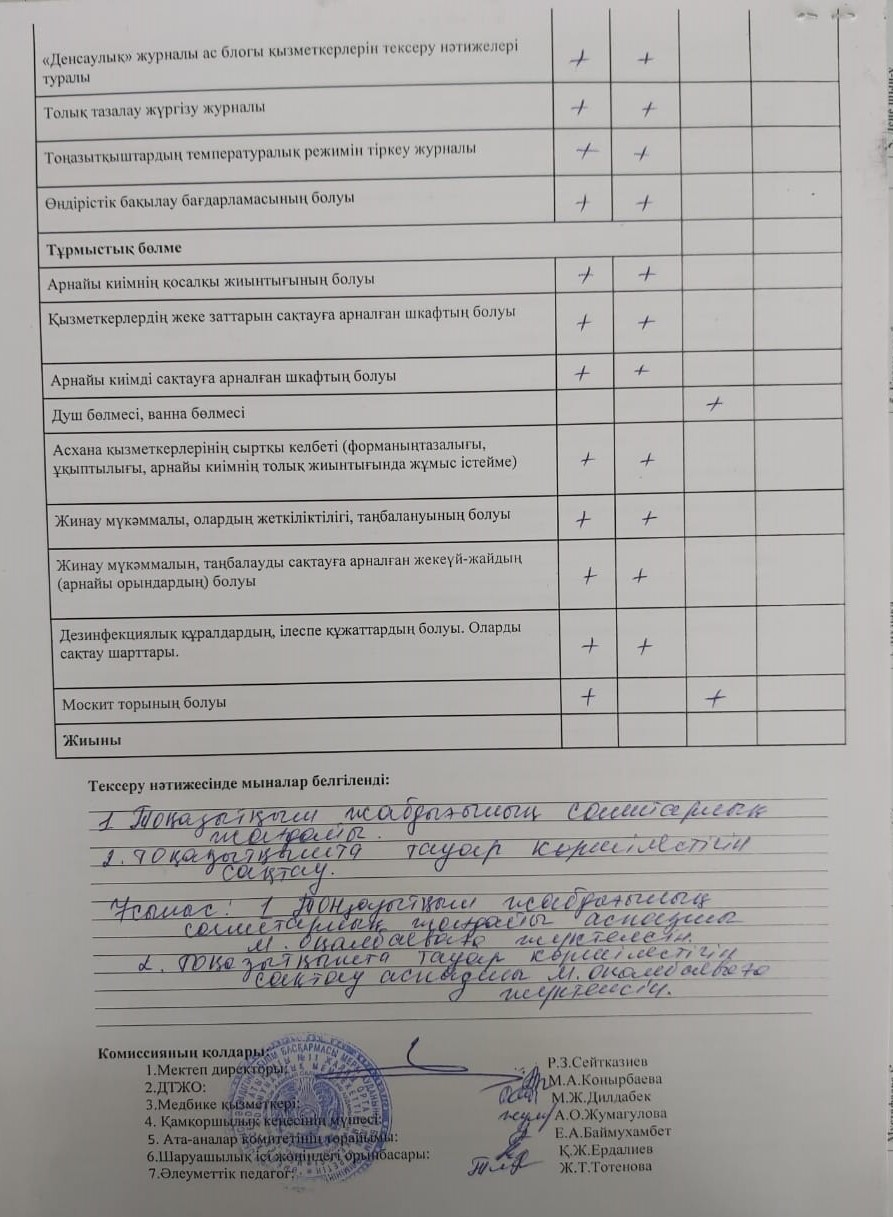 «Денсаулық» журналы ас блогы қызметкерлерін тексеру нәтижелері + +
туралы
Толық тазалау жүргізу журналы + +
Тоңазытқыштардың температуралық режимін тіркеу журналы + +
Өндірістік бақылау бағдарламасының болуы + +
Тұрмыстық бөлме
Арнайы киімнің қосалқы жиынтығының болуы + +
Қызметкерлердің жеке заттарын сақтауға арналған шкафтың болуы + +
Арнайы киімді сақтауға арналған шкафтың болуы + +
Душ бөлмесі, ванна бөлмесі +
Асхана қызметкерлерінің сыртқы келбеті (форманыңтазалығы, + +
ұқыптылығы, арнайы киімнің толық жиынтығында жұмыс істейме)
Жинау мүкәммалы, олардың жеткіліктілігі, таңбалануының болуы + +
Жинау мүкәммалын, таңбалауды сақтауға арналған жекеүй-жайдың + +
(арнайы орындардың) болуы
Дезинфекциялық құралдардың, ілеспе құжаттардың болуы. Оларды + +
сақтау шарттары.
Москит торының болуы + +
Жиыны
Тексеру нәтижесінде мыналар белгіленді:
1 Тоңазытқыш жабдығының санитарлық
жағдайы.
2. Тоңазытқышта тауар көршілестігін
сақтау.
Ұсыныс: 1 Тоңазытқыш жабдығының
санитарлық жағдайы аспазшы
жүктелсін.
2. Тоңазытқышта тауар көршілестігін
сақтау аспазшы
жүктелсін.
Комиссияның қолдары:
1.Мектеп директоры: Р.З.Сейтказиев
2.ДТЖО: М.А.Конырбаева
3.Медбике қызметкері: М.Ж.Дилдабек
4. Қамқоршылық кеңесінің мүшесі: А.О.Жумагулова
5. Ата-аналар комитетінің төрайымы: Е.А.Баймухамбет
6.Шаруашылық ісі жөніндегі орынбасары: Қ.Ж.Ердалиев
7.Әлеуметтік педагог: Ж.Т.Тотенова